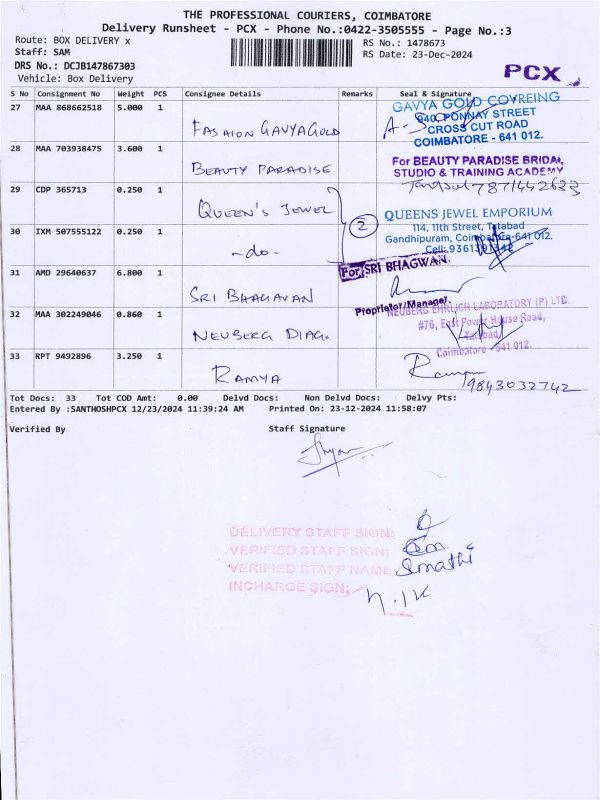 THE PROFESSIONAL COURIERS, COIMBATORE
Delivery Runsheet - PCX - Phone No.:0422-3505555 - Page No.:3
Route: BOX DELIVERY x
RS No.: 1478673
Staff: SAM
RS Date: 23-Dec-2024
DRS No.: DCJB147867303
Vehicle: Box Delivery
PCX
S No Consignment No Weight PCS Consignee Details Remarks Seal & Signature
27 MAA 868662518 5.000 1
FASHION GAVYAGOLD
GAVYA GOLD COVREING
940, PONNAY STREET
CROSS CUT ROAD
COIMBATORE - 641 012.
28 MAA 703938475 3.600 1
BEAUTY PARADISE
For BEAUTY PARADISE BRIDAL
STUDIO & TRAINING ACADEMY
7871442633
29 CDP 365713 0.250 1
QUEEN'S JEWEL
2
QUEENS JEWEL EMPORIUM
114, 11th Street, Tatabad
Gandhipuram, Coimbatore-641 012.
30 IXM 507555122 0.250 1
-do-
31 AMD 29640637 6.800 1
SRI BHAGAVAN
For SRI BHAGWAN,
Proprietor/Manager.
32 MAA 302249046 0.860 1
NEUBERG DIAG.
NEUBERG EHRLICH LABORATORY (P) LTD.
#76, East Power House Road,
Tatabad,
Coimbatore - 641 012.
33 RPT 9492896 3.250 1
RAMYA
9843032742
Tot Docs: 33 Tot COD Amt: 0.00 Delvd Docs: Non Delvd Docs: Delvy Pts:
Entered By :SANTHOSHPCX 12/23/2024 11:39:24 AM Printed On: 23-12-2024 11:58:07
Verified By Staff Signature
DELIVERY STAFF SIGN:
VERIFIED STAFF SIGN:
VERIFIED STAFF NAME
INCHARGE SIGN;